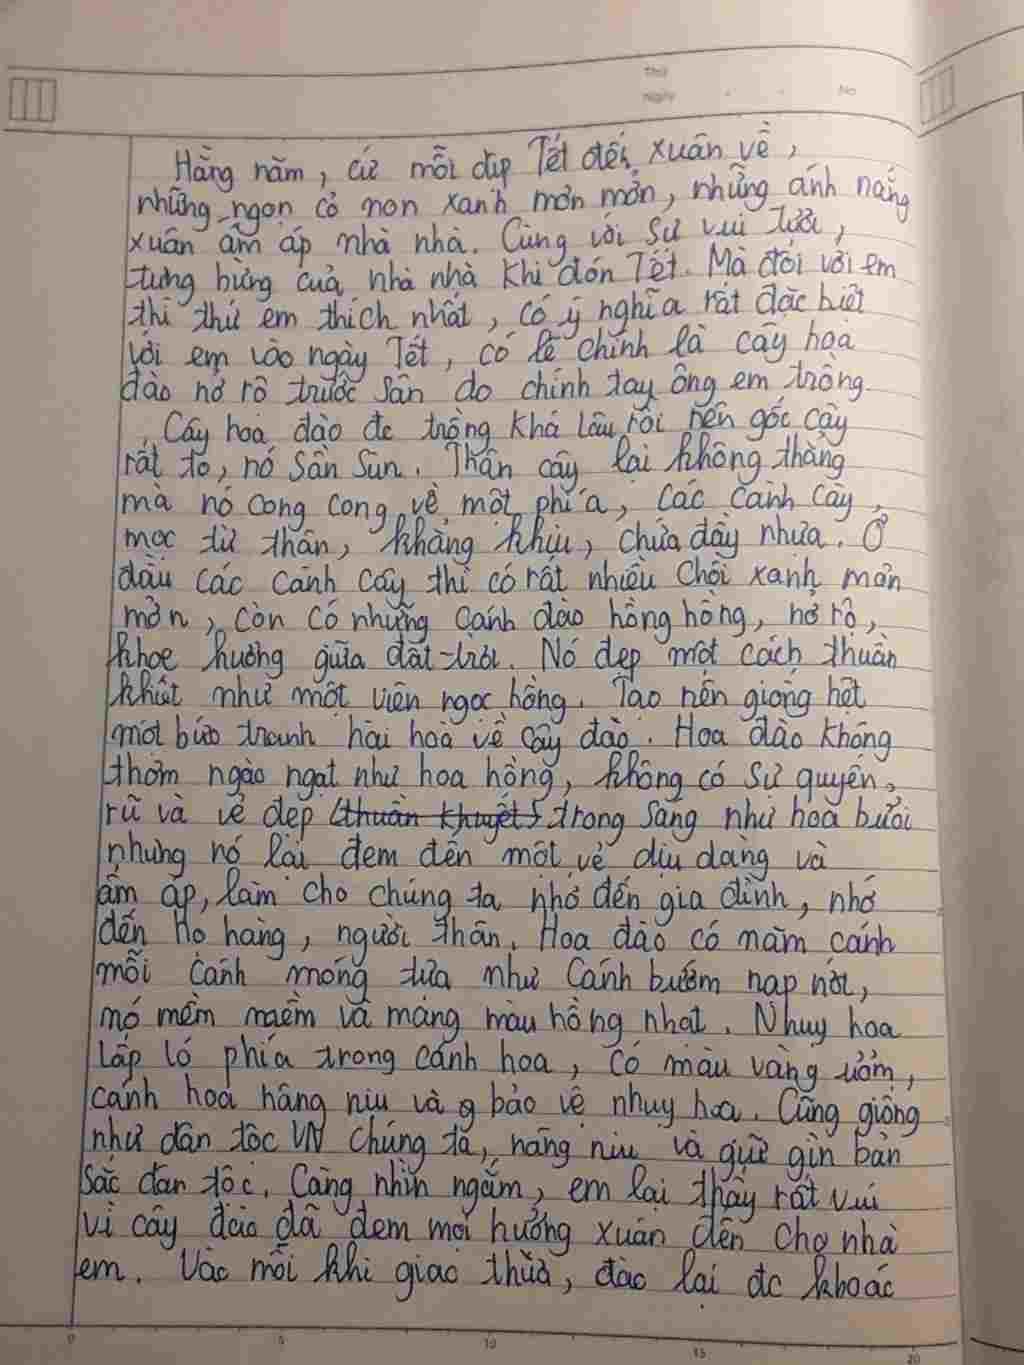 Thứ
Ngày . . No
Hằng năm, cứ mỗi dịp Tết đến xuân về,
những ngọn cỏ non xanh mơn mởn, những ánh nắng
xuân ấm áp nhà nhà. Cùng với sự vui tươi,
tưng bừng của nhà nhà khi đón Tết. Mà đối với em
thì thứ em thích nhất, có ý nghĩa rất đặc biệt
với em vào ngày Tết, có lẽ chính là cây hoa
đào nở rộ trước sân do chính tay ông em trồng.
Cây hoa đào đc trồng khá lâu rồi nên gốc cây
rất to, nó sần sùn. Thân cây lại không thẳng
mà nó cong cong về một phía, các cành cây
mọc từ thân, khẳng khịu, chứa đầy nhựa. Ở
đầu các cành cây thì có rất nhiều chồi xanh mơn
mởn, còn có những cánh đào hồng hồng, nở rộ,
khoe hương giữa đất trời. Nó đẹp một cách thuần
khiết như một viên ngọc hồng. Tạo nên giống hệt
một bức tranh hài hoà về cây đào. Hoa đào không
thơm ngào ngạt như hoa hồng, không có sự quyến
rũ và vẻ đẹp (thuần khuyết) trong sáng như hoa bưởi
nhưng nó lại đem đến một vẻ dịu dàng và
ấm áp, làm cho chúng ta nhớ đến gia đình, nhớ
đến họ hàng, người thân. Hoa đào có năm cánh
mỗi cánh mỏng tựa như cánh bướm nạp nớt,
nó mềm mềm và mang màu hồng nhạt. Nhụy hoa
lấp ló phía trong cánh hoa, có màu vàng ươm,
cánh hoa nâng niu và bảo vệ nhụy hoa. Cũng giống
như dân tộc VN chúng ta, nâng niu và giữ gìn bản
sắc dân tộc. Càng nhìn ngắm, em lại thấy rất vui
vì cây đào đã đem mọi hương xuân đến cho nhà
em. Vào mỗi khi giao thừa, đào lại đc khoác
0 5 10 15 20